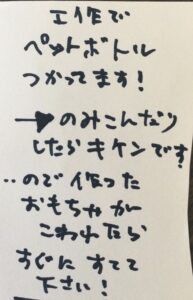 工作で
ペットボトル
つかってます!
→のみこんだり
したらキケンです!
..ので作った
おもちゃが
こわれたら
すぐに すてて
下さい!